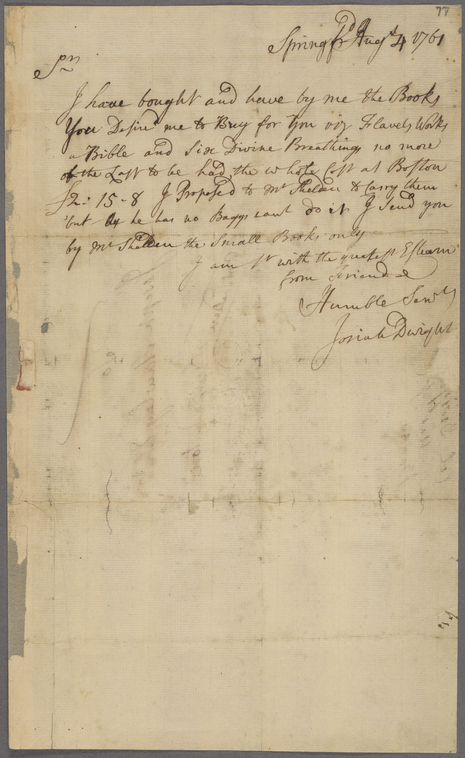 77
Springfd Augst 4 1761
Sr
I have bought and have by me the Books
You Desired me to Buy for you viz Flavels Works
a Bible and Six Divine Breathings no more
of the Last to be had the whole Cost at Boston
£2: 15-8 I Proposed to Mr Sheldon to Carry them
but as he has no Baggs cant do it I Send you
by Mr Sheldon the Small Books only
I am Sr with the greatest Esteem
from Friend &
Humble Servt
Josiah Dwight